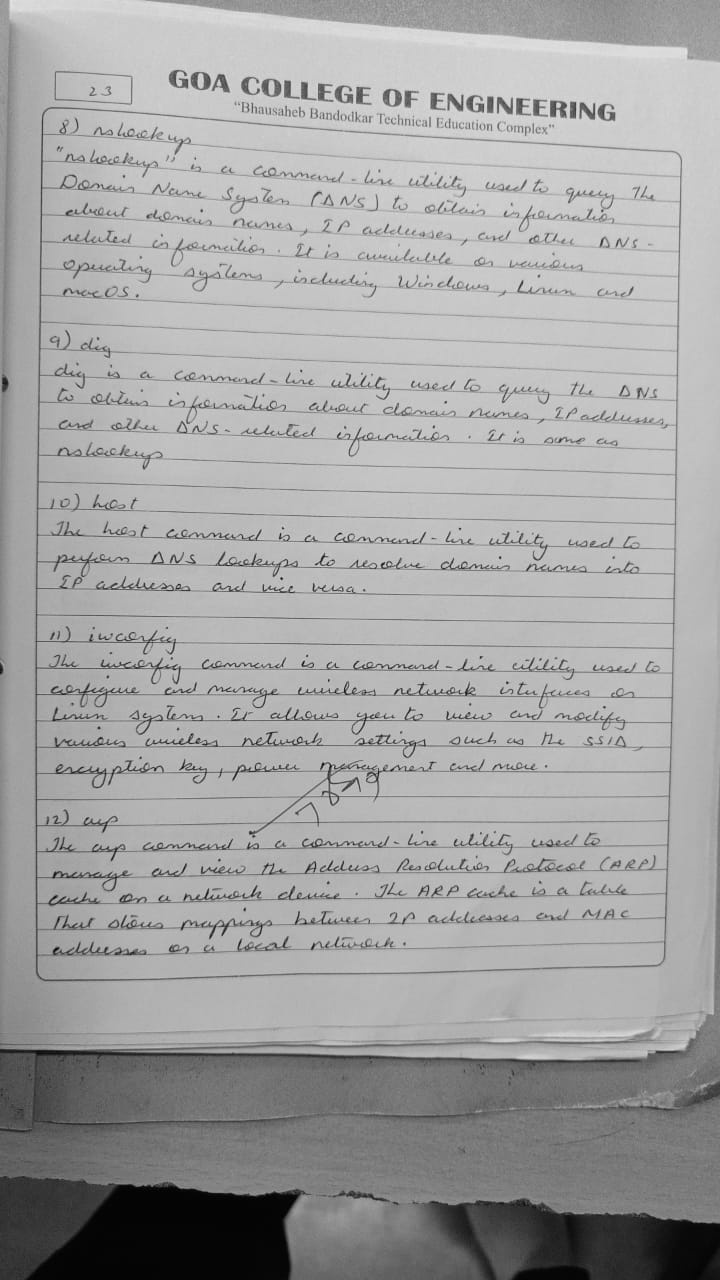 23
GOA COLLEGE OF ENGINEERING
"Bhausaheb Bandodkar Technical Education Complex"
8) nslookup
"nslookup" is a command-line utility used to query the
Domain Name System (DNS) to obtain information
about domain names, IP addresses, and other DNS-
related information. It is available on various
operating systems, including Windows, Linux and
macOS.
9) dig
dig is a command-line utility used to query the DNS
to obtain information about domain names, IP addresses,
and other DNS-related information. It is same as
nslookup
10) host
The host command is a command-line utility used to
perform DNS lookups to resolve domain names into
IP addresses and vice versa.
11) iwconfig
The iwconfig command is a command-line utility used to
configure and manage wireless network interfaces on
Linux systems. It allows you to view and modify
various wireless network settings such as the SSID,
encryption key, power management and more.
12) arp
The arp command is a command-line utility used to
manage and view the Address Resolution Protocol (ARP)
cache on a network device. The ARP cache is a table
that stores mappings between IP addresses and MAC
addresses on a local network.